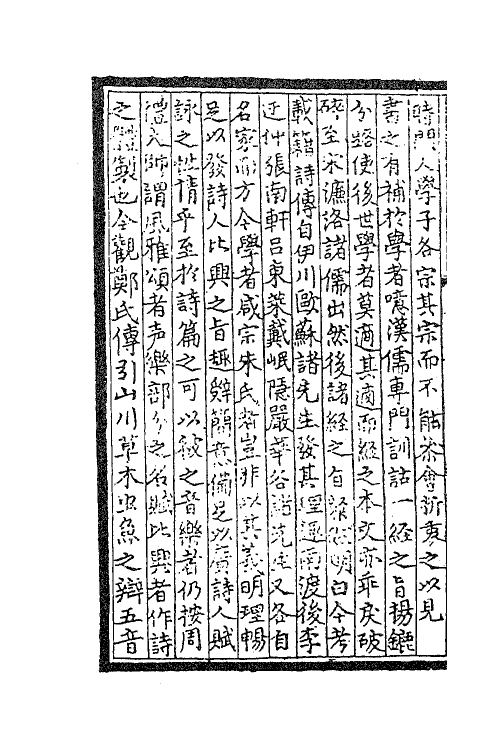 時門人學子各宗其宗而不能恭會折衷之以見
書之有補於學者噫漢儒專門訓詁一經之旨揚鑣
分路使後世學者莫適其適而經之本文亦乖戾破
碎至宋濂洛諸儒出然後諸經之旨明白今考
載籍詩傳自伊川歐蘇諸先生發其理趣南渡後李
迂仲張南軒呂東萊戴岷隱嚴華谷諸先生又各自
名家而方今學者咸宗朱氏者豈非以其義明理暢
足以發詩人比興之旨趣辭簡意備足以廣詩人賦
詠之性情乎至於詩篇之可以被之音樂者仍按周
禮大師謂風雅頌者声樂部分之名賦比興者作詩
之體製也今觀鄭氏傳引山川草木虫魚之辯五音